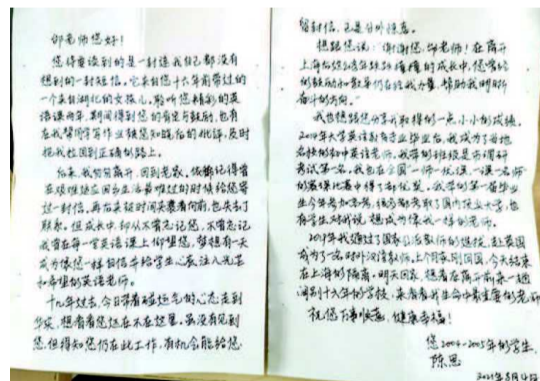 邵老师您好！
您将要读到的是一封连我自己都没有
想到的一封短信。它来自您十六年前带过的
一个来自湖北的女孩儿。聆听您精彩的英
语课两年，期间得到您的肯定与鼓励，也有
在我帮同学写作业被您知晓后的批评，及时
把我拉回到正确的路上。
后来，我匆匆离开，回到老家，依稀记得曾
在艰难适应回乡生活最难过的时候给您写
过一封信，再后来被时间夹裹着向前，也失去了
联系。但成长中，却从不曾忘记您，不曾忘记
我曾在每一堂英语课上仰望您，梦想有一天
成为像您一样自信并给学生心灵注入光芒
和希望的英语老师。
十九年过去，今日带着碰运气的心态走到
华实，想看看您还在不在这里。虽没有见到
您，但得知您仍在此工作，有机会能给您
留封信，已是分外惊喜。
想跟您说：谢谢您，邵老师！在离开
上海后跌跌撞撞的成长中，您曾给
的鼓励和教导仍在给我力量，帮助我明晰
奋斗的方向。
我也想跟您分享我取得的一点小小的成绩。
2014年大学英语教育专业毕业后，我成为了当地
名校的初中英语老师。我带的班级是市调研
考试第一名，我也在全国一师一优课，一课一名师
的赛课比赛中得了部优奖。我带的第一届毕业
生今年参加高考，传来都考取了国内顶尖大学，也
有学生对我说想成为像我一样的老师。
2019年我通过了国家公派教师的选拔，赴英国
成为了一名对外汉语教师。上个月刚回国，今天结束
在上海的隔离。明天回家，想着在离开前来一趟
阔别十六年的学校，来看看我生命中最重要的老师
祝您万事顺意，健康幸福！
您2004-2005年的学生，
陈思
2021年8月4日